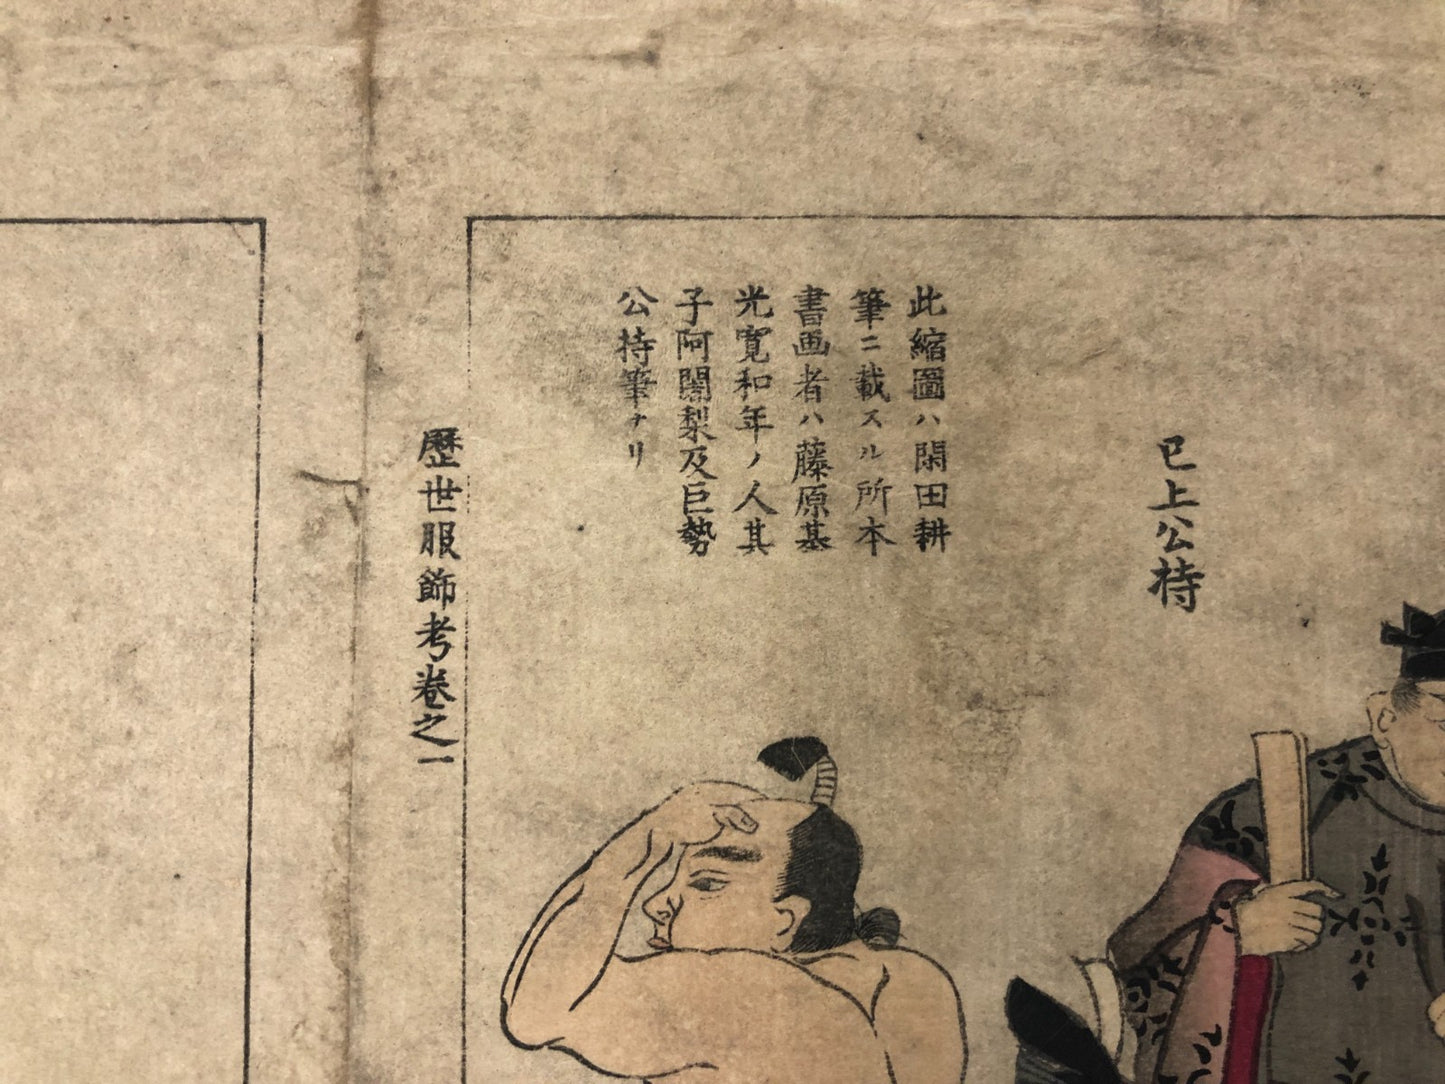 已上公持
此縮圖ハ閑田耕
筆ニ載スル所本
書画者ハ藤原基
光寛和年ノ人其
子阿闍梨及巨勢
公持筆ナリ
歴世服飾考巻之一